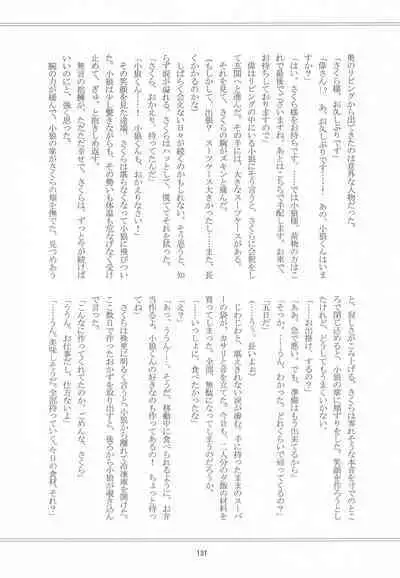 奥のリビングから出てきたのは意外な人物だった。
「さくら様、お久しぶりです」
「偉さん!? あ、お久しぶりです……! あの、小狼くんはいま
すか?」
「はい、さくら様をお待ちです。……では小狼様、荷物の方はこ
れで最後でございますね。あとはこちらで手配します。お車で
お待ちしておりますので」
偉はリビングの中にいる小狼にそう言うと、さくらに会釈をし
て玄関へと進んだ。その手には、大きなスーツケースがある。
それを見て、さくらの胸がズキンと痛んだ。
(もしかして、出張? スーツケース大きかったし……また、長
くかかるのかな)
しばらく会えない日々が続くのかもしれない。そう思うと、知
らず涙が溢れる。さくらはハッとして、慌ててそれを拭った。
「さくら、おかえり。待ってたんだ」
「小狼くん……! 小狼くんも、おかえりなさい!」
その笑顔を見た途端、さくらは堪らなくなって小狼に飛びつい
た。小狼は少し驚きながらも、その勢いも体温も危なげなく受け
止めて、ぎゅっと抱きしめ返す。
無言の抱擁が、ただただ幸せで、さくらは、ずっとこうが続けば
いいのにと、強く思った。
腕の力が緩んで、小狼の掌がさくらの頬を撫でた。見つめあう
と、寂しさがこみ上げる。さくらは零れそうな本音を寸でのとこ
ろで閉じ込めると、小狼の掌に頬ずりをした。笑顔を作ろうとし
たけれど、どうしてもうまくいかない。
「……お出掛け、するの?」
「ああ。急で悪い。でも、準備はもう出来てるから」
「そっか。……うん、わかった。どれくらいで帰ってくるの?」
「五日だ」
「……っ、長いよお」
じわじわと、堪えきれない涙が滲む。手に持ったままのスーパ
ーの袋が、カサリと音を立てた。今日も、二人分の夕飯の材料を
買ってしまった。全部、無駄になってしまうのだろうか。
「……いっしょに、食べたかったな」
「え?」
「あっ、ううん……、そうだ。移動中に食べられるように、お弁
当作るよ。小狼くんの好きなのも持ってあるの! ちょっと待っ
ててね!」
さくらは殊更に明るく言うと、小狼から離れて冷凍庫を開けた。
ここ数日で作ったおかずを取り出すと、後ろから小狼が覗き込ん
で言った。
「こんなに作ってくれてたのか。ごめんな、さくら」
「ううん。お仕事だし、仕方ないよ」
「……うん、美味しそうだ。全部持っていく。今日の食材、それ?」
131